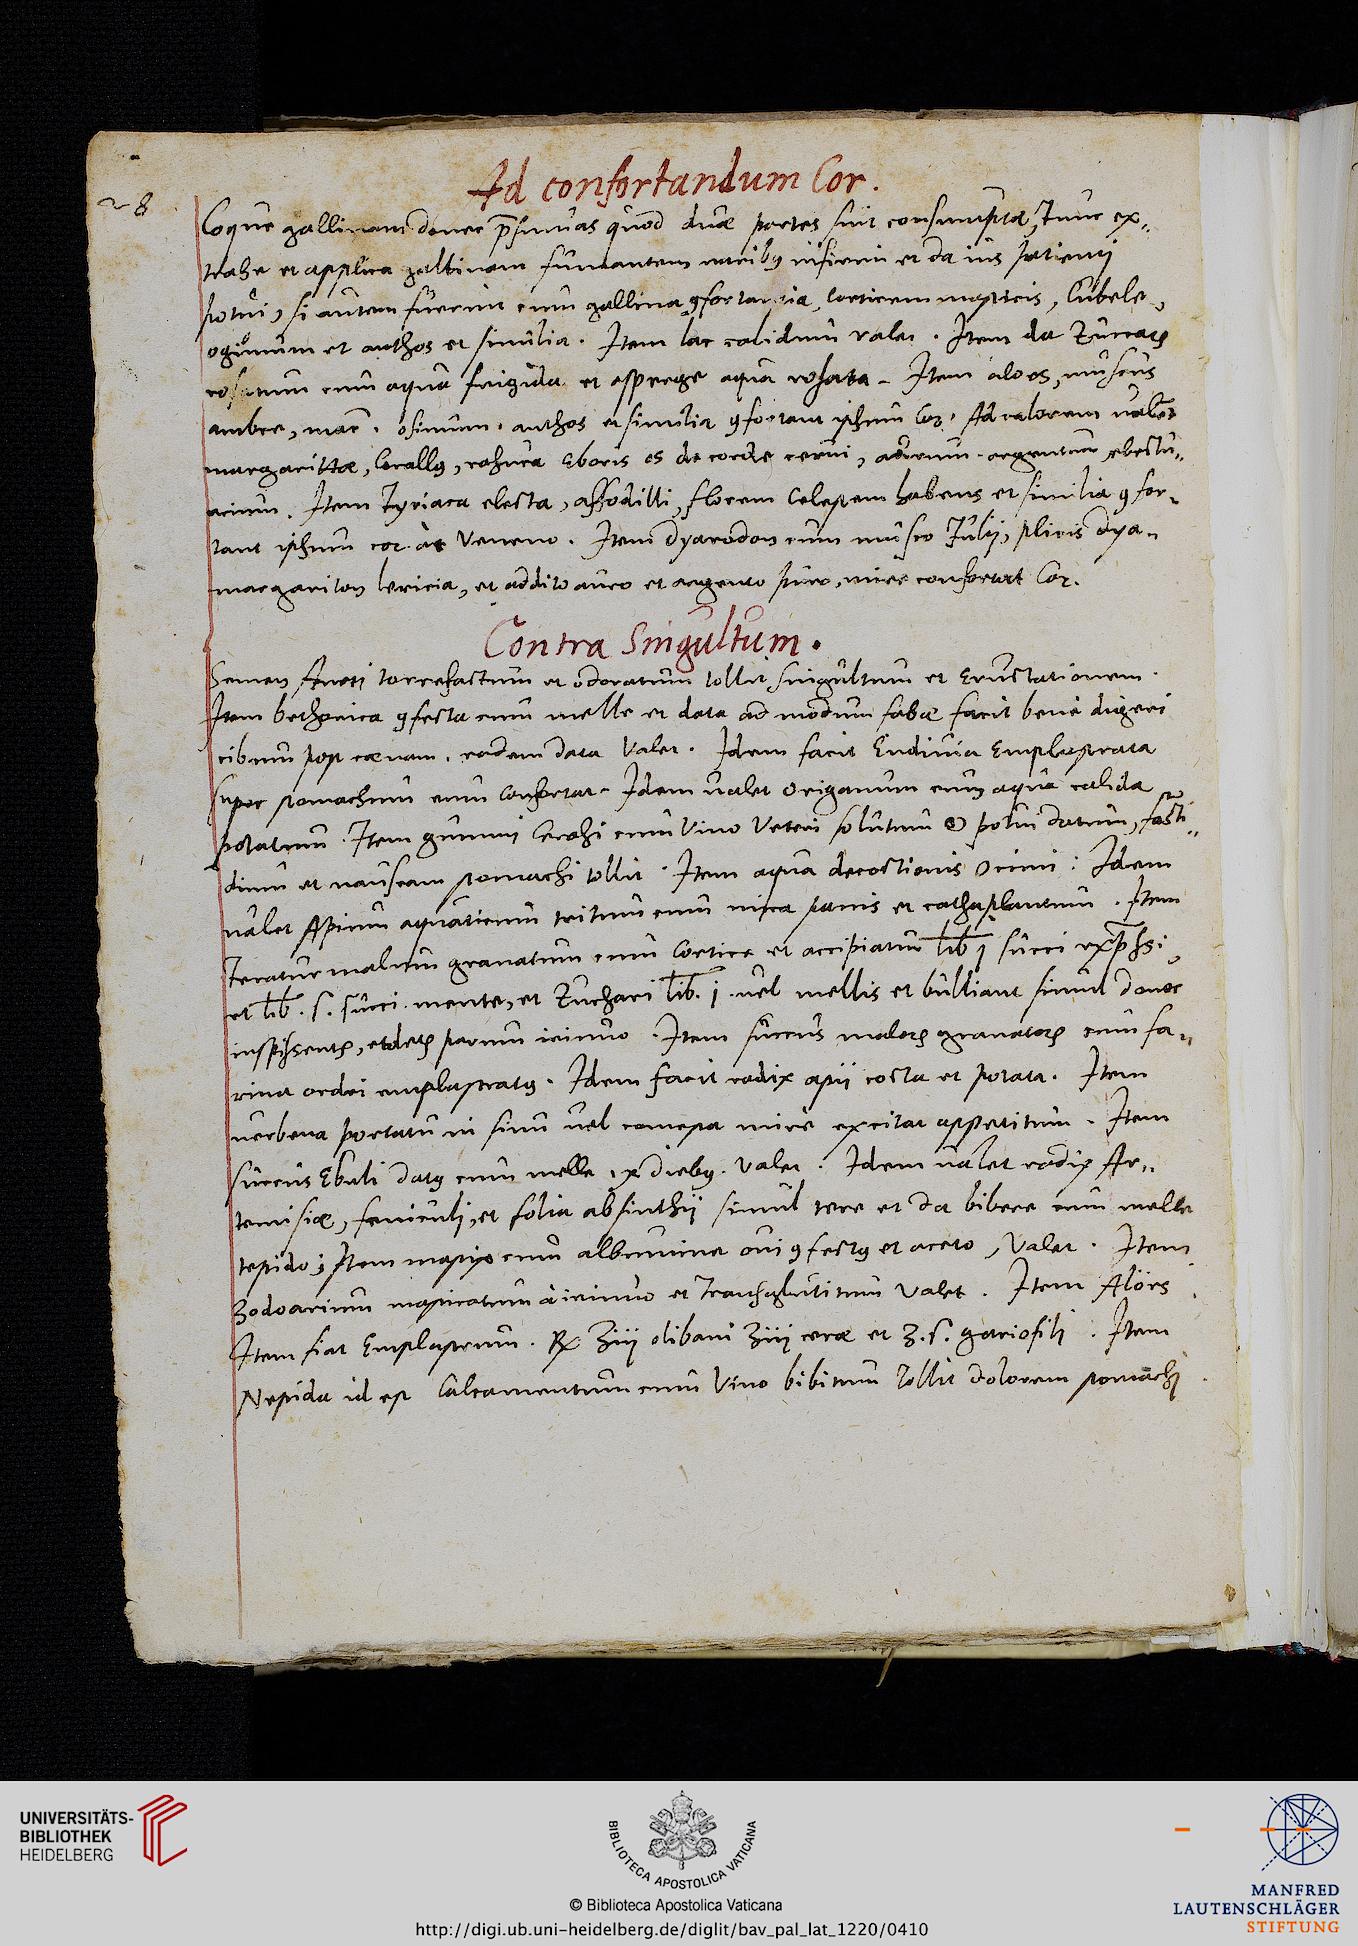 Ad confortandum Cor.
28
Coque gallinam donec p̄sumas quod duæ partes sint consumptæ, Tunc ex„
trahe et applica gallinam fumantem naribꝯ infirmi et da ius patienti
potui, si autem fuerint cum gallina ꝯfortantia, corticem masticis, Cubebe,
ogimum et anthos et similia. Item lac calidum valet. Item da Zuccaꝝ
rosatum cum aqua frigida et asperge aqua rosata - Item aloes, muscus
ambre, mac. osimum. anthos et similia ꝯfortant ipsum Cor. Ad calorem valēt
margarittæ, Corallꝯ, rasura Eboris os de corde cerui, aurum. argentum electu„
arium. Item Tyriaca electa, affodilli, florem Celestem habens et similia ꝯfor„
tant ipsum cor à veneno. Item Dyarodon cum musco Julij, pliris dya„
margariton lericia, et addito auro et argento puro, mire confortat Cor.
Contra Singultum.
Semen Aneti torrefactum et odoratum tollit singultum et Eructationem.
Item bethonica ꝯfecta cum melle et data ad modum fabæ facit bene digeri
cibum post cœnam. eadem data valet. Idem facit Endiuia Emplastrata
super stomachum eum confortat - Idem ualet origanum cum aqua calida
potatum. Item gummi Cerasi cum Vino Veteri solutum & potui datum, fasti„
dium et nauseam stomachi tollit. Item aqua decoctionis Ocimi: Idem
ualet Apium aquaticum tritum cum mica panis et cathaplantum. Item
Teratur malum granatum cum Cortice et accipiatur lib j succi exp̄ssi,
et lib. s. succi mente, et Zuchari lib. j. uel mellis et bulliant simul donec
inspissentꝝ, et detꝝ parum ieiuno. Item succus maloꝝ granatoꝝ cum fa„
rina ordei emplastratꝯ. Idem facit radix apii cocta et potata. Item
uerbena portatū in sinu uel comesta mire excitat appetitum. Item
succus Ebuli datꝯ cum melle ix diebꝯ. valet. Idem ualet radix Ar„
temisiæ, feniculi, et folia absinthij simul tere et da bibere cum melle
tepido; Item mastix cum albumine oui ꝯfectꝯ et aceto, valet. Item
Zodoarium masticatum à ieiuno et Transglutitum valet. Item Aloës.
Item fiat Emplastrum. ℞ ʒiij olibani ʒiij ceræ et ʒ.s. gariofili. Item
Nepida id est Calcamentum cum Vino bibitum tollit dolorem stomachi
UNIVERSITÄTS-
BIBLIOTHEK
HEIDELBERG
BIBLIOTECA APOSTOLICA VATICANA
© Biblioteca Apostolica Vaticana
http://digi.ub.uni-heidelberg.de/diglit/bav_pal_lat_1220/0410
MANFRED
LAUTENSCHLÄGER
STIFTUNG